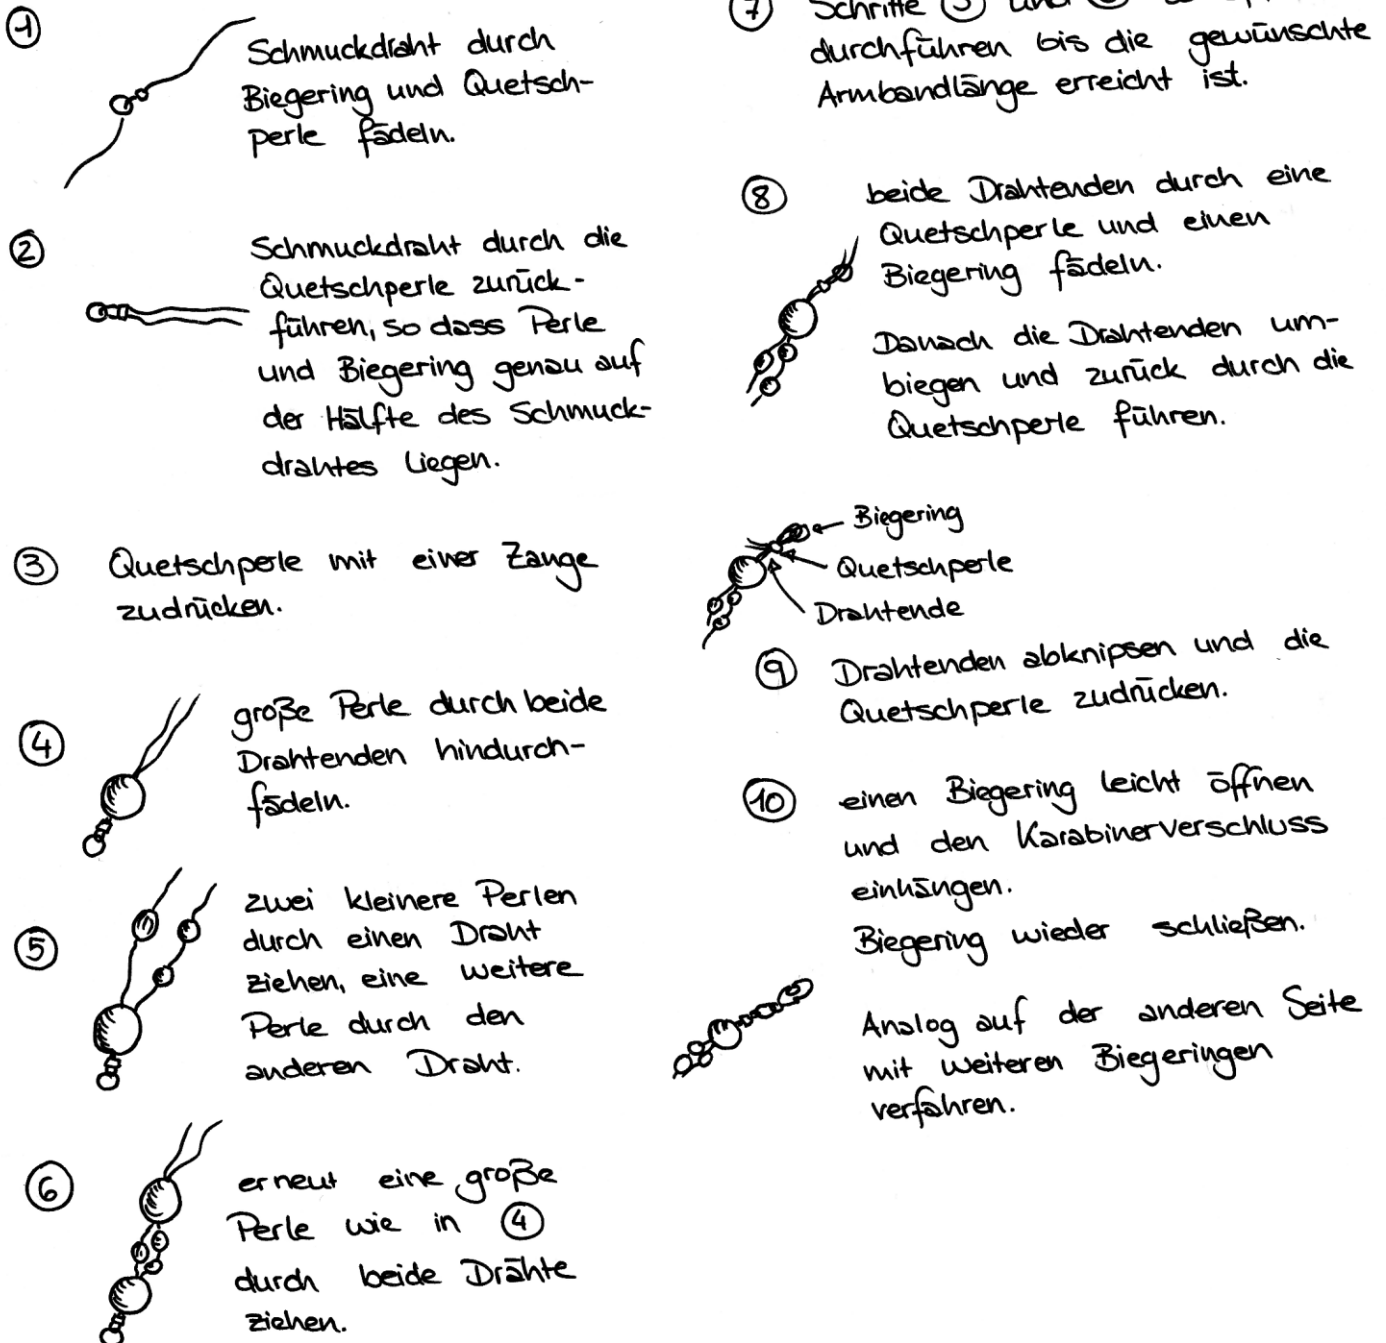 1
Schmuckdraht durch
Biegering und Quetsch-
perle fädeln.
2
Schmuckdraht durch die
Quetschperle zurück-
führen, so dass Perle
und Biegering genau auf
der Hälfte des Schmuck-
drahtes liegen.
3 Quetschperle mit einer Zange
zudrücken.
4
große Perle durch beide
Drahtenden hindurch-
fädeln.
5
zwei kleinere Perlen
durch einen Draht
ziehen, eine weitere
Perle durch den
anderen Draht.
6
erneut eine große
Perle wie in 4
durch beide Drähte
ziehen.
7 Schritte 5 und
durchführen bis die gewünschte
Armbandlänge erreicht ist.
8 beide Drahtenden durch eine
Quetschperle und einen
Biegering fädeln.
Danach die Drahtenden um-
biegen und zurück durch die
Quetschperle führen.
Biegering
Quetschperle
Drahtende
9 Drahtenden abknipsen und die
Quetschperle zudrücken.
10 einen Biegering leicht öffnen
und den Karabinerverschluss
einhängen.
Biegering wieder schließen.
Analog auf der anderen Seite
mit weiteren Biegeringen
verfahren.